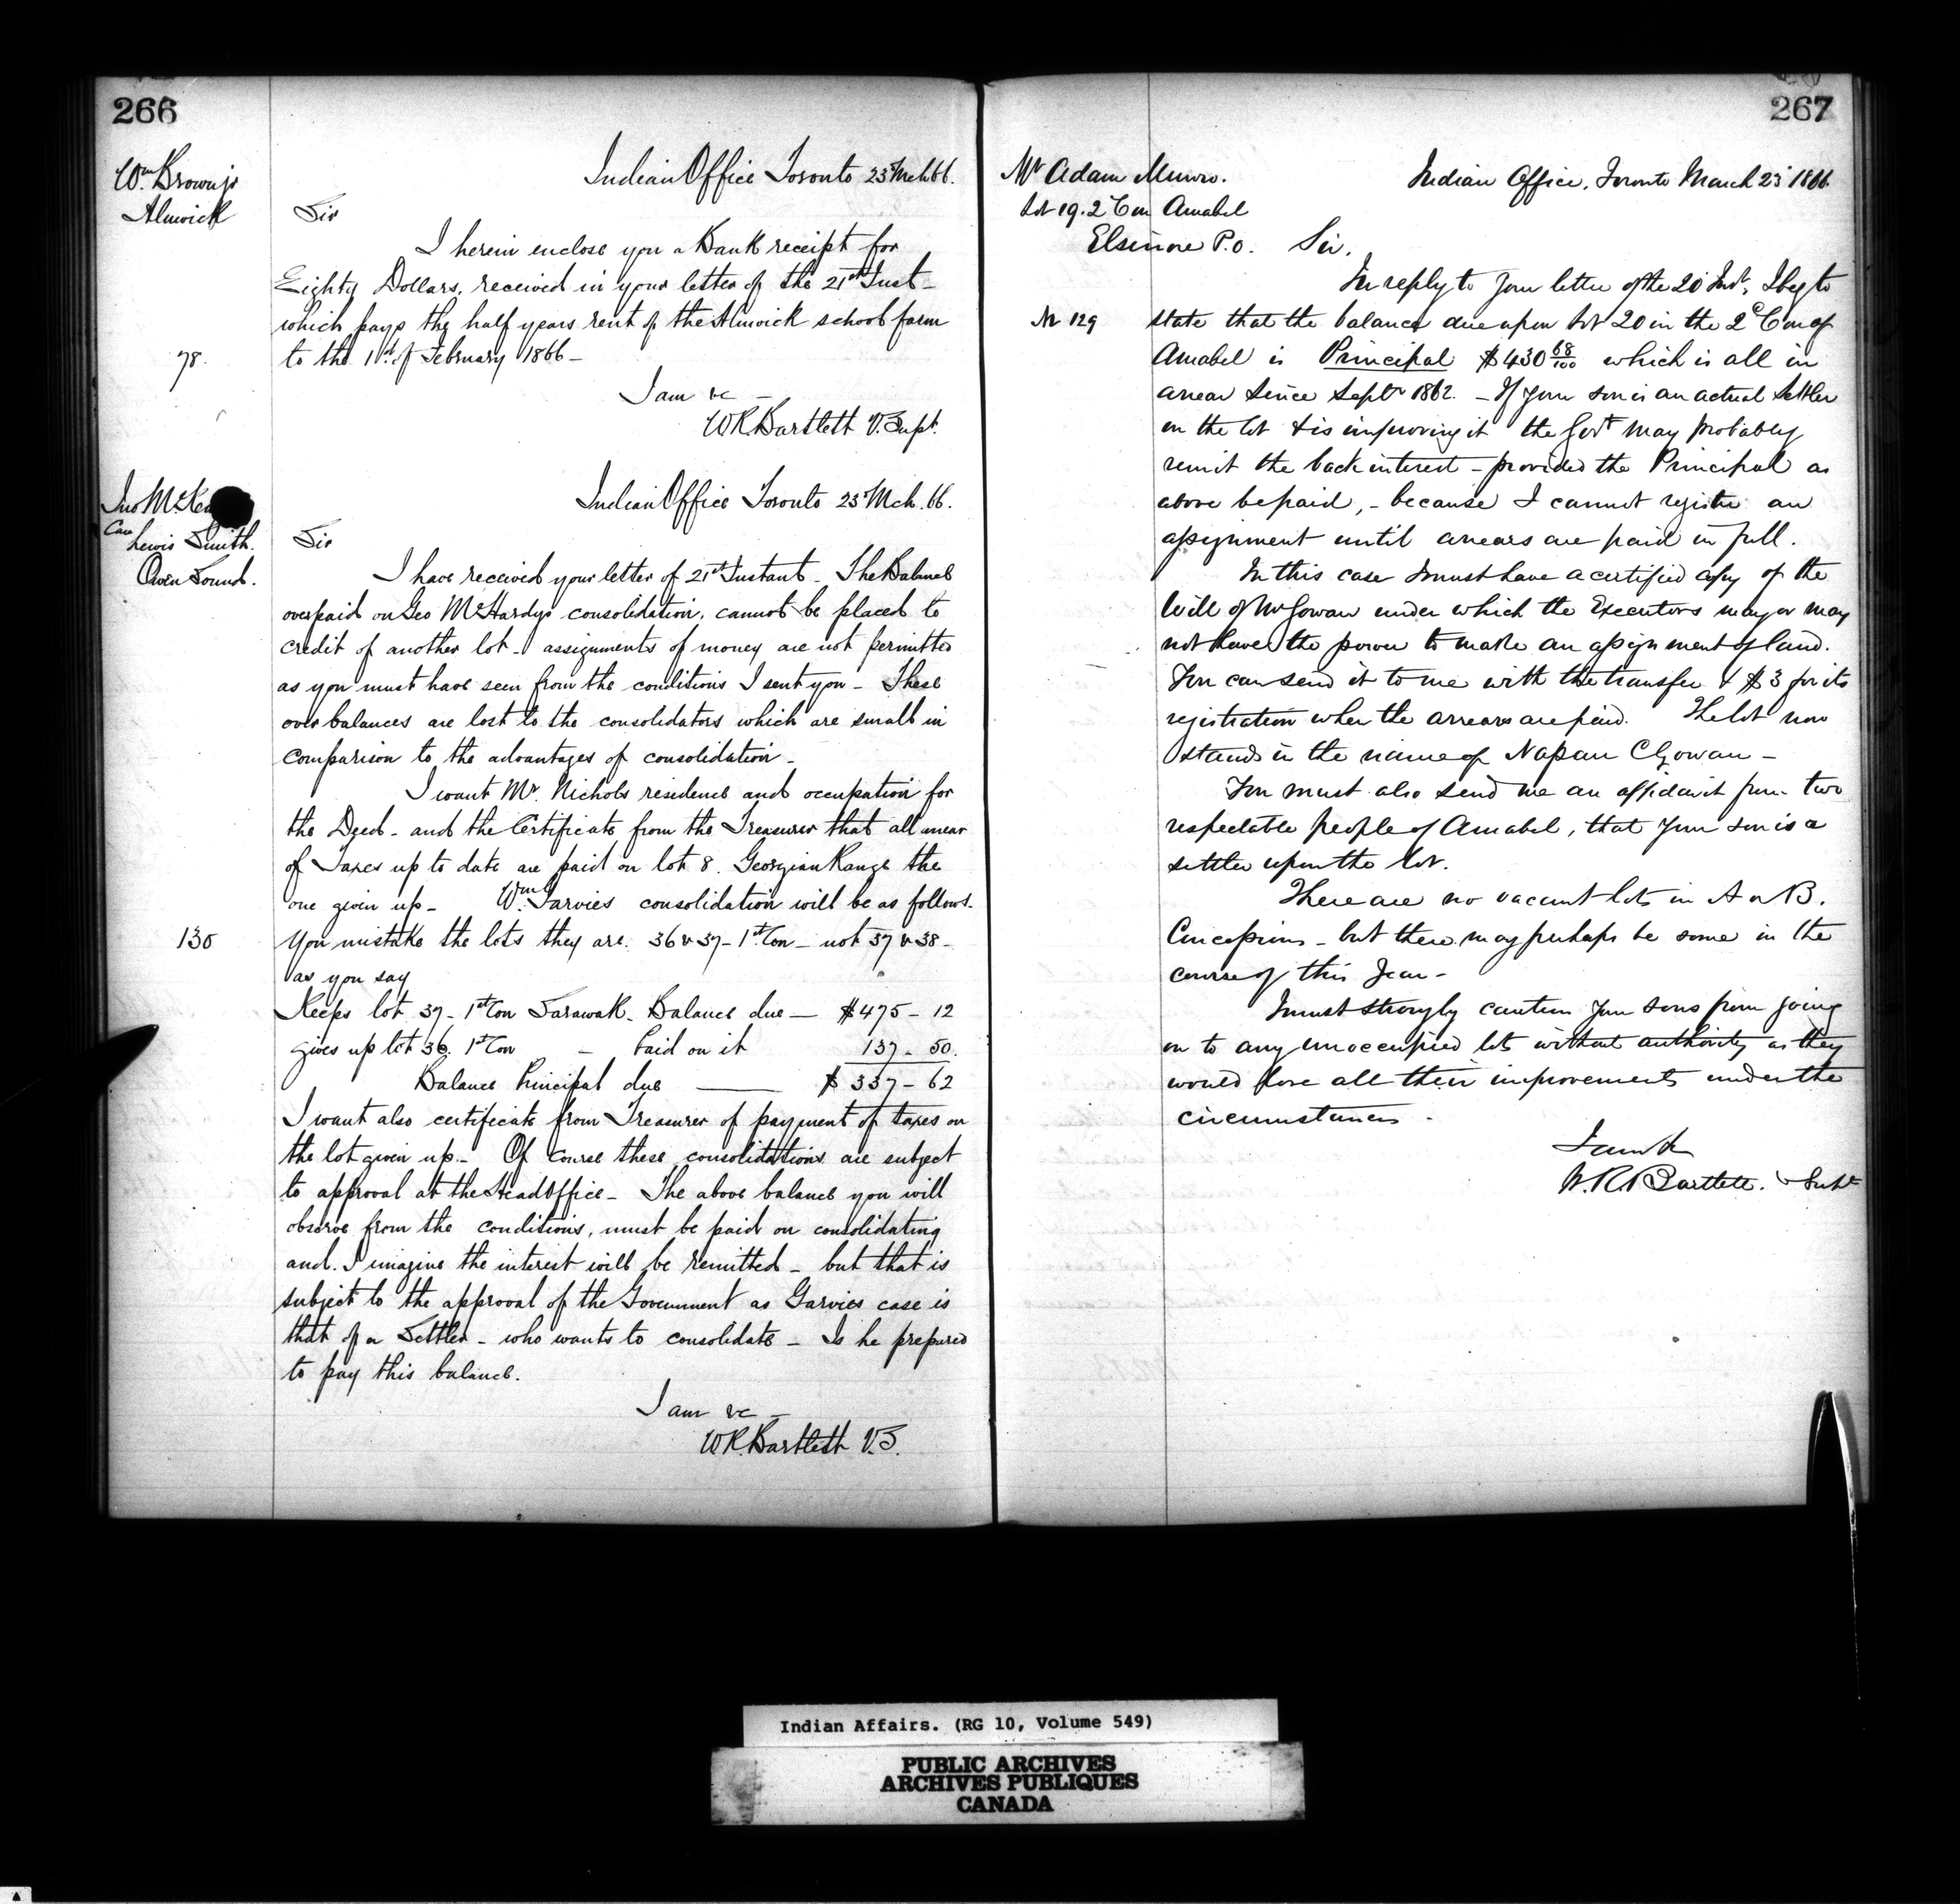 266
Wm. Brown jr
Alnwick
Indian Office Toronto 23 Mch 66.
Sir
I herein enclose you a Bank receipt for
Eighty Dollars, received in your letter of the 21st Inst-
which pays the half years rent of the Alnwick school farm
78.
to the 1st of February 1866-
I am &c -
W R. Bartlett V. Supt.
Jno McKe
Care
Lewis Smith.
Owen Sound.
Indian Office Toronto 23 Mch. 66.
Sir
I have received your letter of 21st Instant - The Balance
overpaid on Geo McHardys consolidation, cannot be placed to
credit of another lot - assignments of money are not permitted
as you must have seen from the conditions I sent you - These
over balances are lost to the consolidators which are small in
comparison to the advantages of consolidation -
I want Mr. Nichols residence and occupation for
the Deed - and the Certificate from the Treasurer that all arrear
of Taxes up to date are paid on lot 8. Georgian Range the
one given up - Wm. Garvies consolidation will be as follows.
130
You mistake the lots they are. 36 & 37 - 1st. Con - not 37 & 38 -
as you say
Keeps lot 37 - 1st Con Sarawak - Balance due — $475 - 12
gives up lot 36. 1st Con - Paid on it 137 - 50.
Balance Principal due — $ 337 - 62
I want also certificate from Treasurer of payment of taxes on
the lot given up - Of course these consolidations are subject
to approval at the Head Office - The above balance you will
observe from the conditions, must be paid on consolidating
and. I imagine the interest will be remitted - but that is
subject to the approval of the Government as Garvies case is
that of a Settler - who wants to consolidate - Is he prepared
to pay this balance.
I am &c -
W R. Bartlett V. S.
267
Mr Adam Munro.
Lot 19. 2 Con Amabel
Elsinore P.O.
Indian Office, Toronto March 23 1866
Sir,
In reply to your letter of the 20 Inst, I beg to
No 129
state that the balance due upon lot 20 in the 2d Con of
Amabel is Principal $430 68/100 which is all in
arrear since Septr 1862. - If your son is an actual settler
on the lot & is improving it the Govt may probably
remit the back interest - provided the Principal as
above be paid, - because I cannot register an
assignment until arrears are paid in full.
In this case I must have a certified copy of the
Will of Mr Gowan under which the Executors may or may
not have the power to make an assignment of land.
You can send it to me with the transfer & $3 for its
registration when the arrears are paid. The lot now
stands in the name of C Gowan -
You must also send me an affidavit from two
respectable people of Amabel, that your son is a
settler upon the lot.
There are no vacant lots in A or B.
Concessions - but there may perhaps be some in the
course of this year -
I must strongly caution your sons from going
on to any unoccupied lots without authority as they
would lose all their improvements under the
circumstances -
I am &c
W. R. Bartlett. V Supt
Indian Affairs. (RG 10, Volume 549)
PUBLIC ARCHIVES
ARCHIVES PUBLIQUES
CANADA